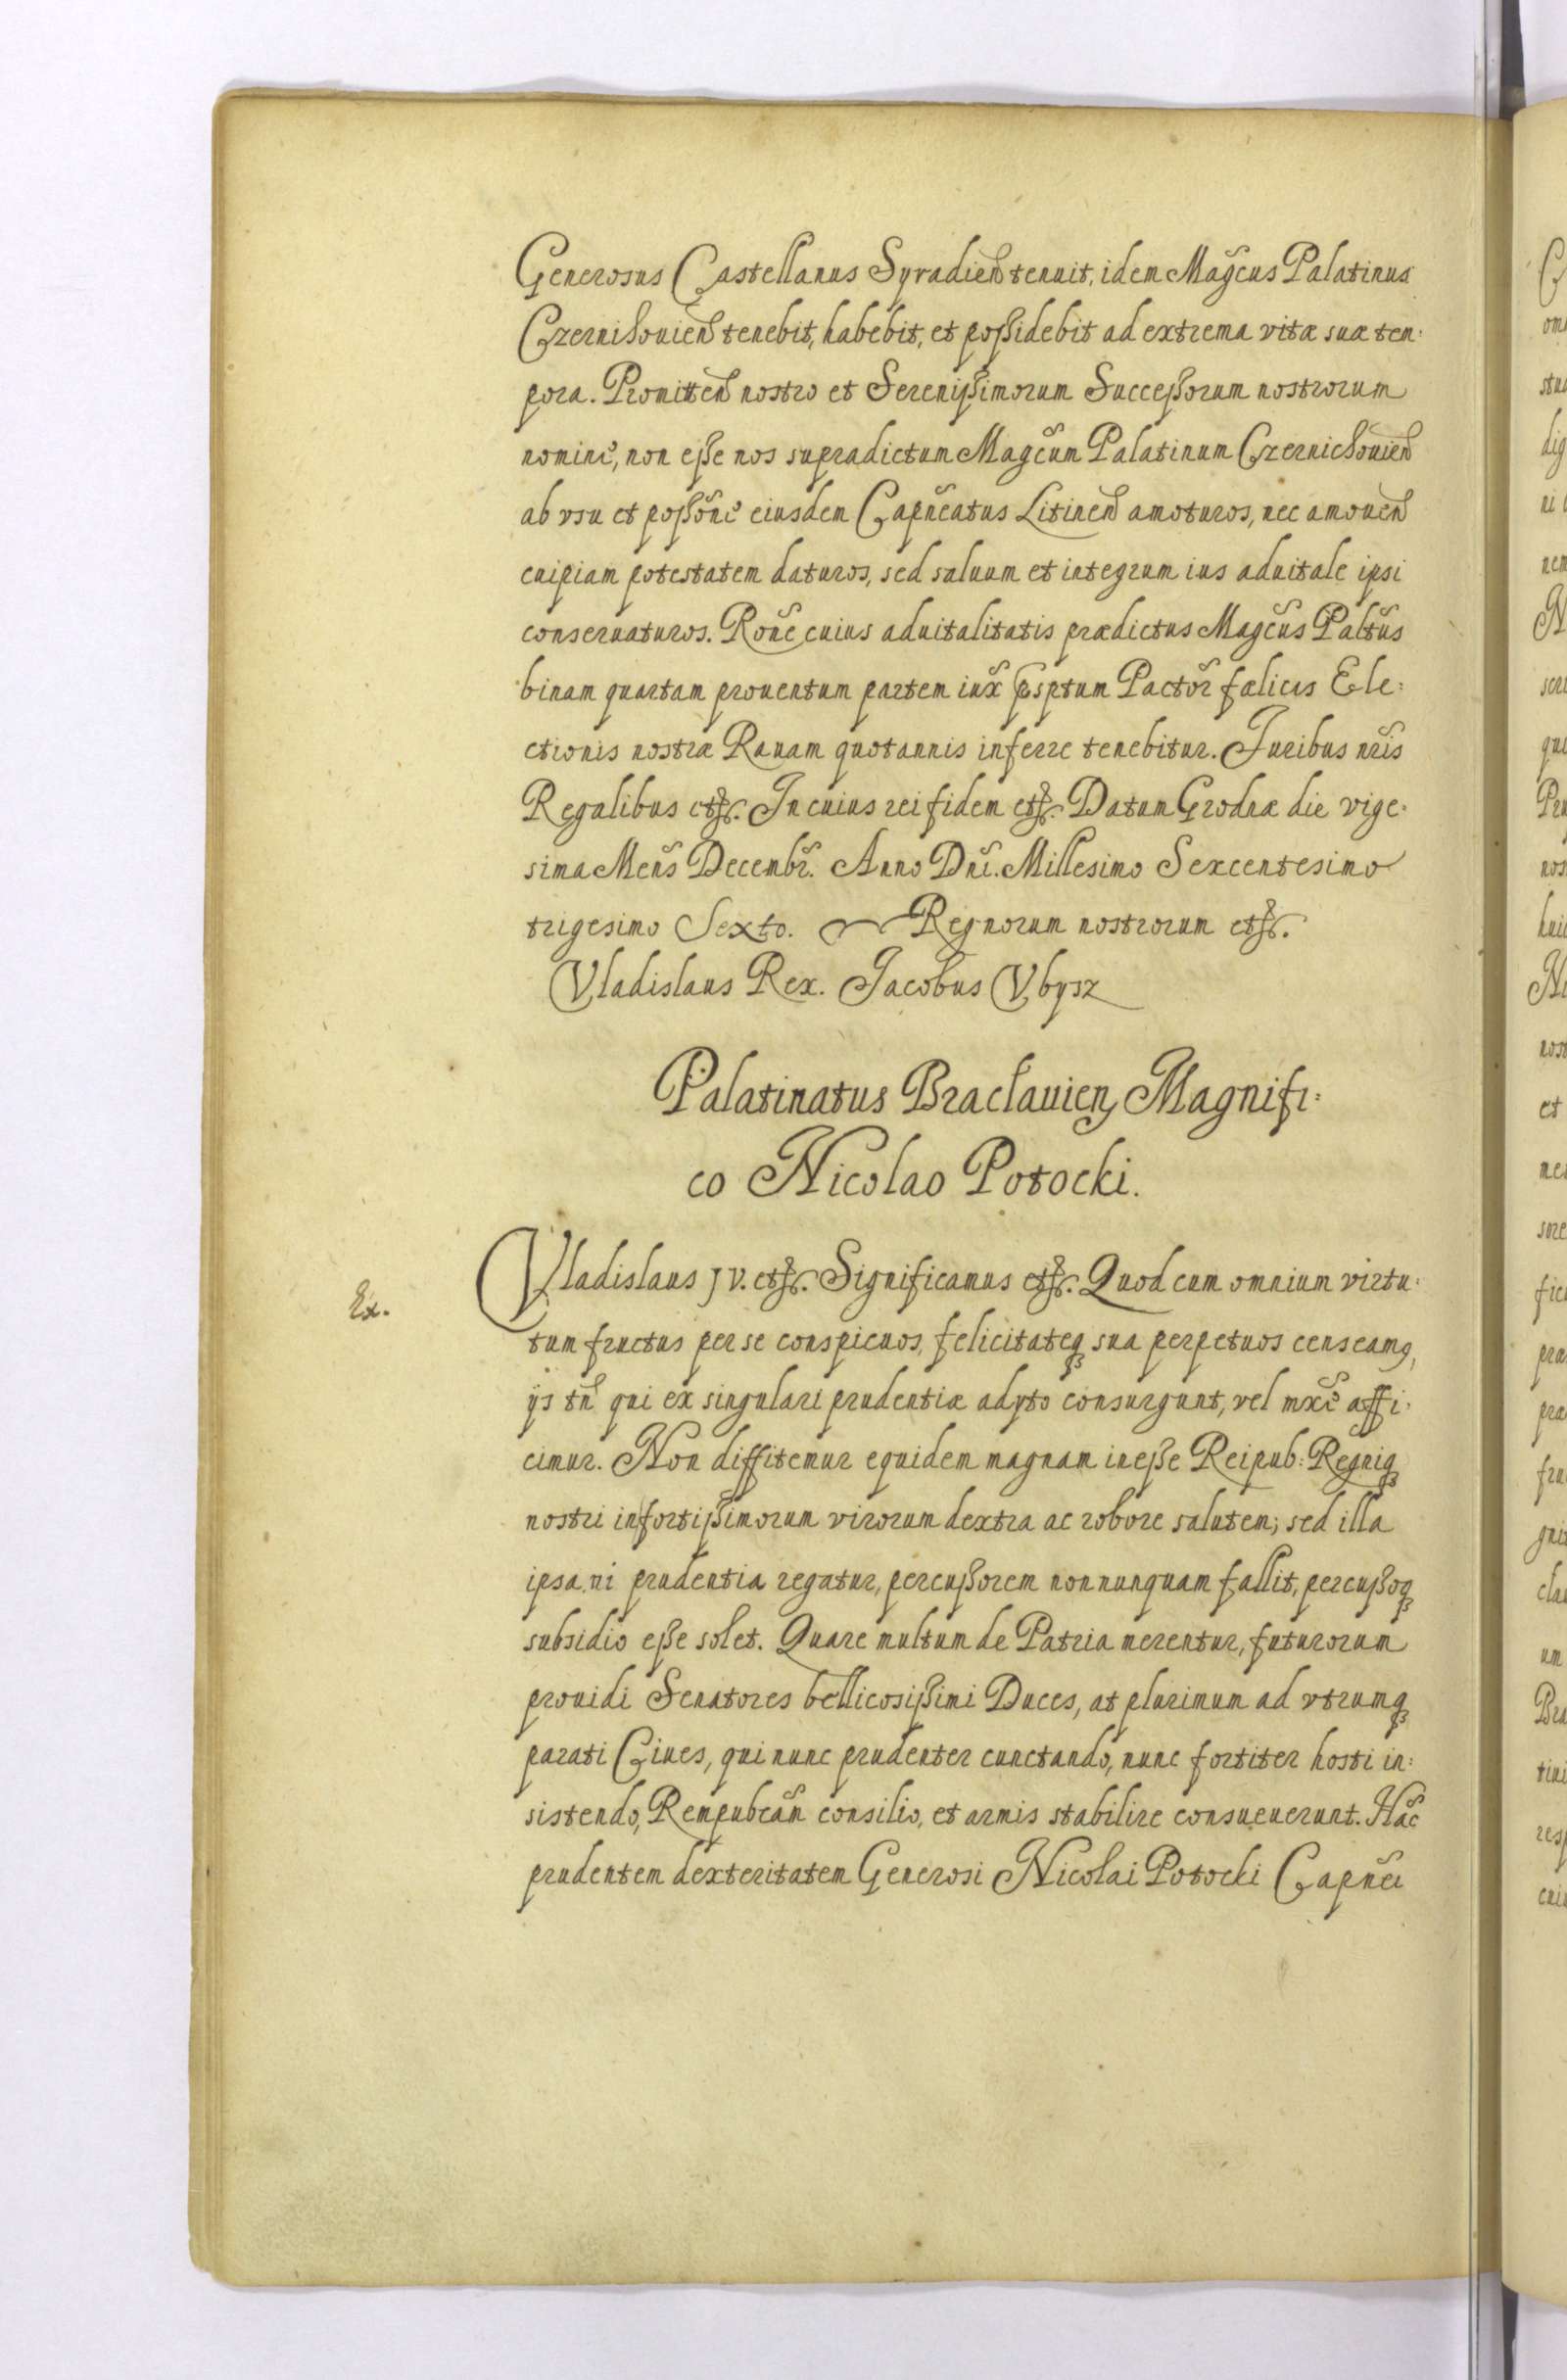 Generosus Castellanus Syradien̄ tenuit, idem Magc̄us Palatinus
Czernihouien̄ tenebit, habebit, et poßidebit ad extrema vitæ suæ tem:
pora. Promitten̄ nostro et Serenißimorum Succeßorum nostrorum
nomine, non eße nos supradictum Magc̄um Palatinum Czernichouien̄
ab vsu et poßōne eiusdem Capn̄eatus Litinen̄ amoturos, nec amouen̄
cuipiam potestatem daturos, sed saluum et integrum ius aduitale ipsi
conseruaturos. Rōne cuius aduitalitatis prædictus Magc̄us Paltūs
binam quartam prouentum partem iux̄ p̄sptum Pactor̄ fælicis Ele:
ctionis nostræ Rauam quotannis inferre tenebitur. Juribus nr̄is
Regalibus etc. In cuius rei fidem etc. Datum Grodnæ die vige:
sima Mens̄ Decembr̄. Anno Dn̄i. Millesimo Sexcentesimo
trigesimo Sexto. Regnorum nostrorum etc.
Vladislaus Rex. Jacobus Vbysz
Palatinatus Bracłauien, Magnifi:
co Nicolao Potocki.
Ex.
Vladislaus IV. etc. Significamus etc. Quod cum omnium virtu:
tum fructus per se conspicuos, felicitateq3 sua perpetuos censeam9,
ijs tn̄ qui ex singulari prudentiæ adyto consurgunt, vel mxē affi:
cimur. Non diffitemur equidem magnam ineße Reipub: Regniq3
nostri in fortißimorum virorum dextra ac robore salutem; sed illa
ipsa ni prudentia regatur, percußorem nonnunquam fallit, percußoq3
subsidio eße solet. Quare multum de Patria merentur, futurorum
prouidi Senatores bellicosißimi Duces, at plurimum ad vtrumq3
parati Ciues, qui nunc prudenter cunctando, nunc fortiter hosti in:
sistendo, Rempubcām consilio, et armis stabilire consueuerunt. Hāc
prudentem dexteritatem Generosi Nicolai Potocki Capn̄ei